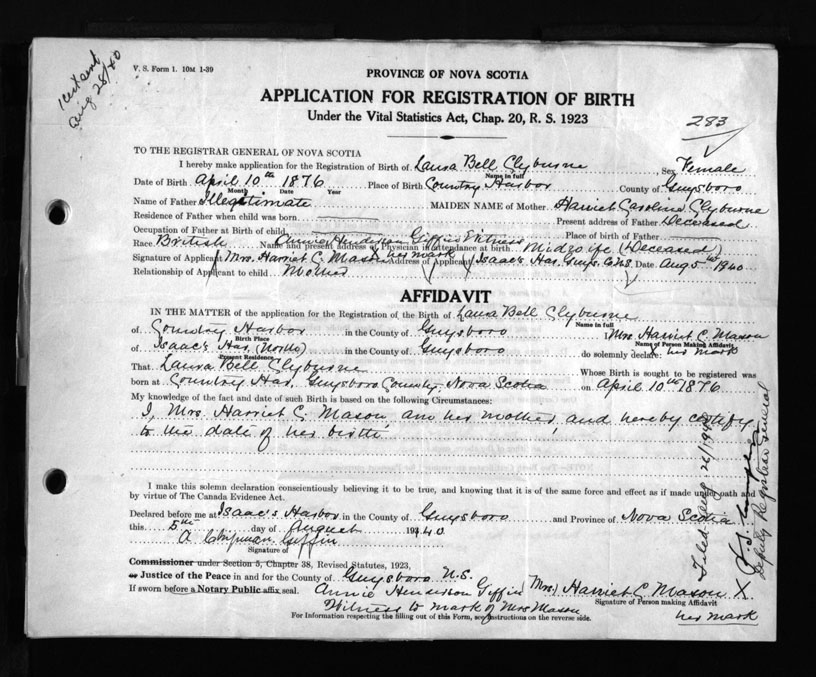 1 cert sent
Aug 28/40
V. S. Form 1. 10M 1-39
PROVINCE OF NOVA SCOTIA
APPLICATION FOR REGISTRATION OF BIRTH
Under the Vital Statistics Act, Chap. 20, R. S. 1923
283
TO THE REGISTRAR GENERAL OF NOVA SCOTIA
I hereby make application for the Registration of Birth of Laura Bell Clyburne Sex Female
Name in full
Date of Birth April 10th 1876 Place of Birth Country Harbor County of Guysboro
Month Date Year
Name of Father Illegetimate MAIDEN NAME of Mother Harriet Caroline Clyburne
Residence of Father when child was born Present address of Father Deceased
Occupation of Father at Birth of child Place of Birth of Father
Race British Name and present address of Physician in attendance at birth Midwife (Deceased)
Annie Henderson Giffin Witness
Signature of Applicant Mrs. Harriet C. Mason her mark Address of Applicant Isaac's Har. Guys. Co. N.S. Date Aug 5th 1940
Relationship of Applicant to child Mother
AFFIDAVIT
IN THE MATTER of the application for the Registration of the Birth of Laura Bell Clyburne
Name in full
of Country Harbor in the County of Guysboro I Mrs. Harriet C. Mason
Birth Place Name of Person Making Affidavit
of Isaac's Har. (North) in the County of Guysboro do solemnly declare: her mark
Present Residence
That Laura Bell Clyburne Whose Birth is sought to be registered was
born at Country Har. Guysboro County, Nova Scotia on April 10th 1876
My knowledge of the fact and date of such Birth is based on the following Circumstances:
I, Mrs. Harriet C. Mason am her mother, and hereby certify
to the date of her birth.
I make this solemn declaration conscientiously believing it to be true, and knowing that it is of the same force and effect as if made under oath and
by virtue of The Canada Evidence Act.
Declared before me at Isaac's Harbor in the County of Guysboro and Province of Nova Scotia
this 5th day of August 1940
A Chipman Giffin
Signature of
Commissioner under Section 5, Chapter 38, Revised Statutes, 1923,
or Justice of the Peace in and for the County of Guysboro N.S.
If sworn before a Notary Public affix seal. Annie Henderson Giffin (Mrs) Harriet C. Mason X
Signature of Person making Affidavit
Witness to mark of Mrs Mason her mark
For Information respecting the filling out of this Form, see instructions on the reverse side.
Filed Aug
Deputy Registrar General